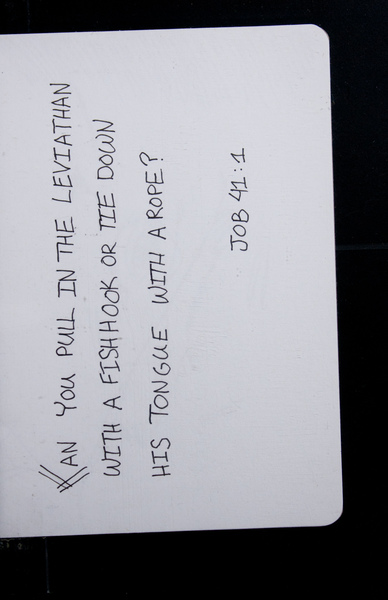 CAN YOU PULL IN THE LEVIATHAN
WITH A FISHHOOK OR TIE DOWN
HIS TONGUE WITH A ROPE?
JOB 41:1